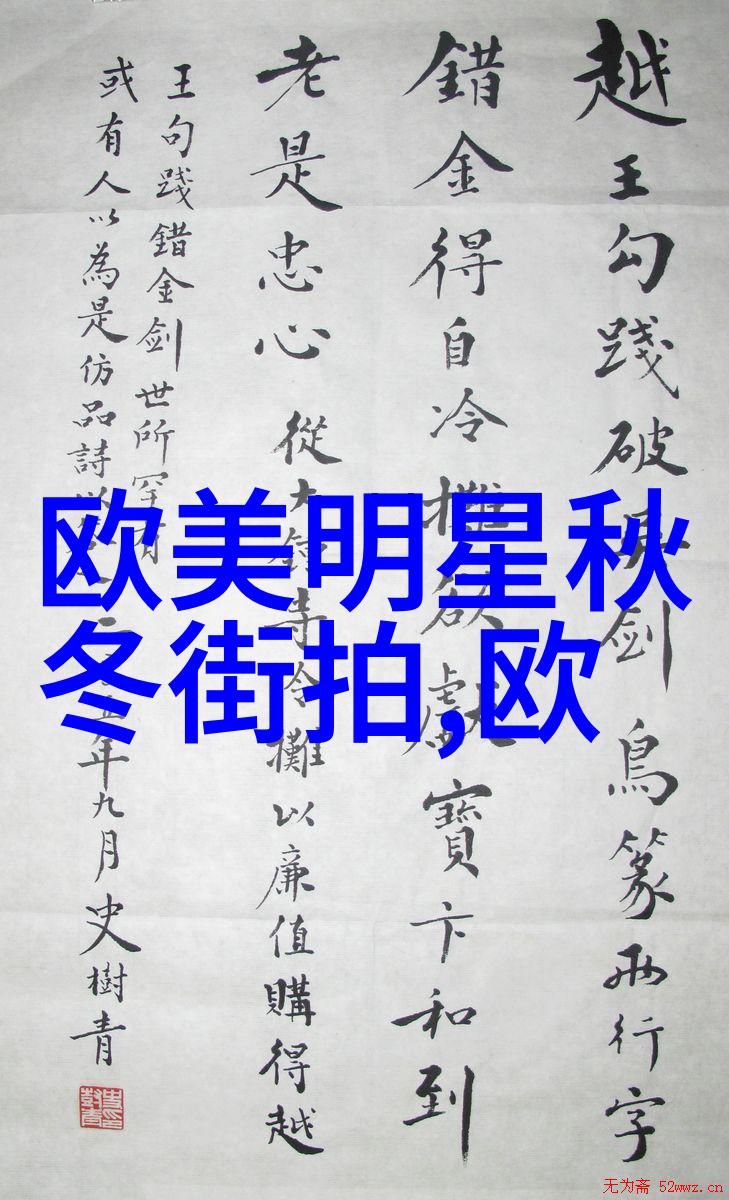 越王勾踐破吳剑鳥篆兩行字
錯金得自冷攤欲獻寶卞和到
老是忠心 從大鐘寺冷攤以廉值購得越
王句踐錯金剑世所罕有
或有人以為是仿品詩以 五年九月史樹青
欧美明星秋
冬街拍,欧
无为斋 52wwz.cn